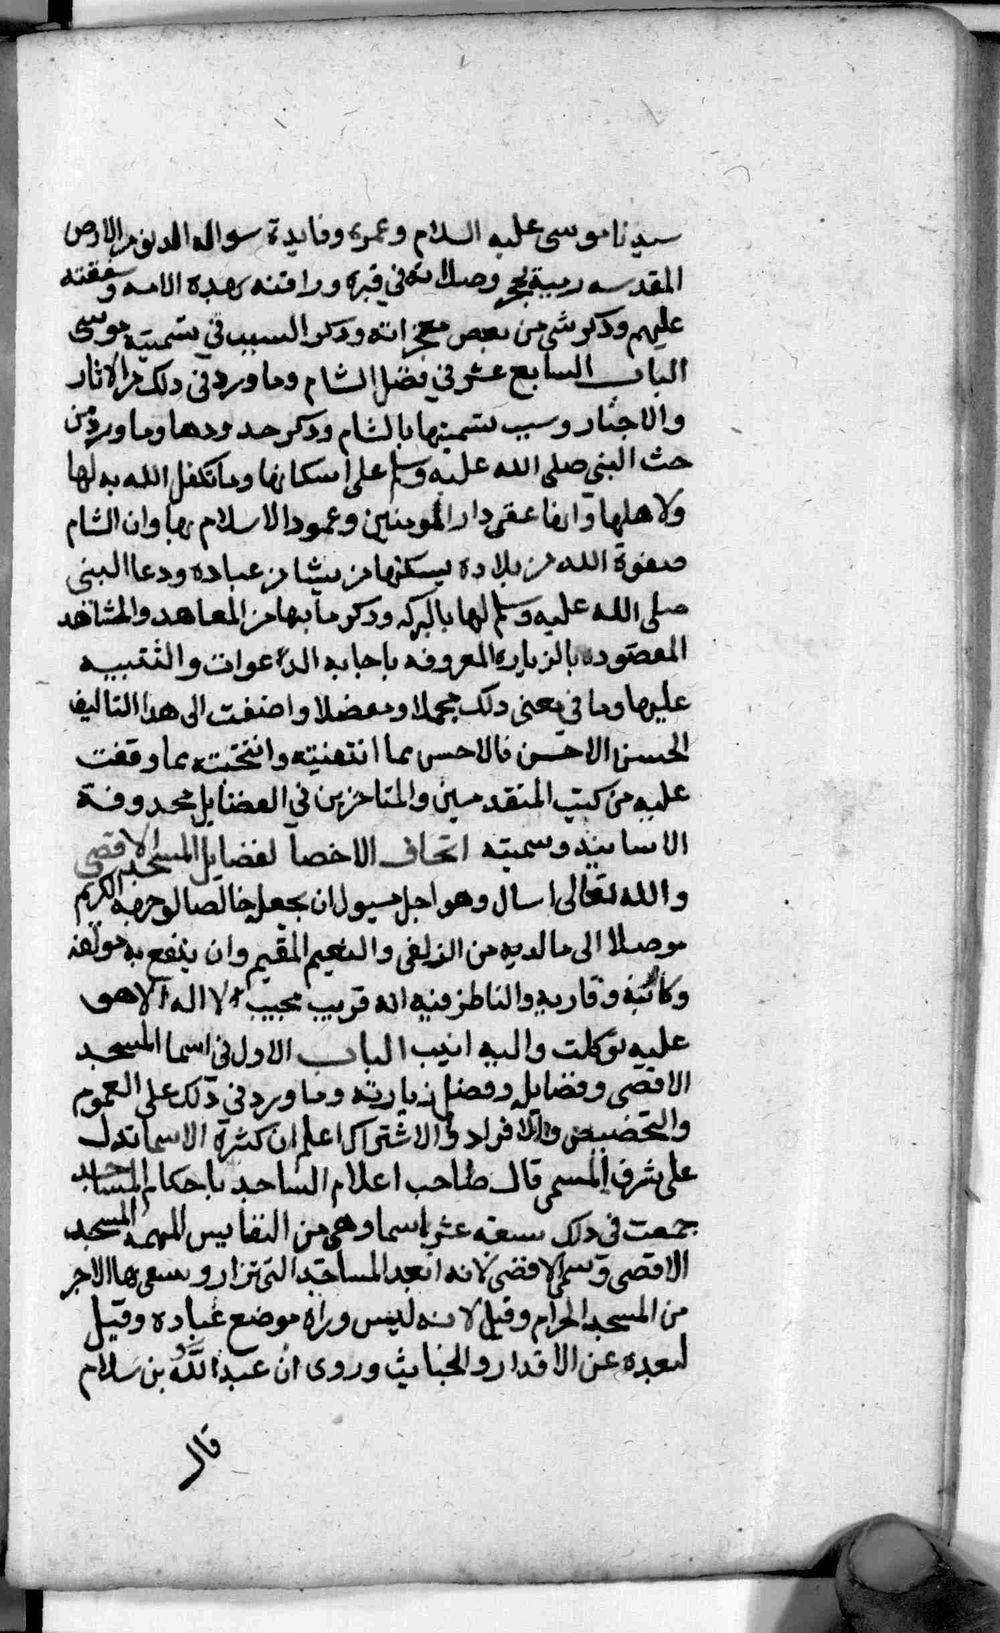 سيدنا موسى عليه السلام وعمره وفايدة سواله الدنو من الارض
المقدسه رمية بحجر وصلاته في قبره ورافته بهذه الامه وشفقته
عليهم وذكر شي من بعض معجزاته وذكر السبب في تسميته موسى
الباب السابع عشر في فضل الشام وما ورد في ذلك من الاثار
والاخبار وسبب تسميتها بالشام وذكر حدودها وما ورد من
حث النبي صلى الله عليه وسلم على اسكانها وما تكفل الله به لها
ولاهلها وانها عقر دار المومنين وعمود الاسلام بها وان الشام
صفوة الله من بلاده يسكنها من يشا من عباده ودعا النبي
صلى الله عليه وسلم لها بالبركه وذكر ما بها من المعاهد والمشاهد
المقصوده بالزياره المعروفه باجابه الدعوات والتنبيه
عليها وما في معنى ذلك مجملا ومفصلا واضفت الى هذا التاليف
الحسن الاحسن فالاحسن مما انتقيته وانتخبته مما وقفت
عليه من كتب المتقدمين والمتاخرين في الفضايل محذوفة
الاسانيد وسميته اتحاف الاخصا بفضايل المسجد الاقصى
والله تعالى اسال وهو اجل مسيول ان يجعله خالصا لوجهه الكريم
موصلا الى ما لديه من الزلفى والنعيم المقيم وان ينفع به مولفه
وكاتبه وقاريه والناظر فيه انه قريب مجيب لا اله الا هو
عليه توكلت واليه انيب الباب الاول في اسما المسجد
الاقصى وفضايله وفضل زيارته وما ورد في ذلك على العموم
والتخصيص والافراد والاشتراك اعلم ان كثرة الاسما تدل
على شرف المسمى قال صاحب اعلام الساجد باحكام المساجد
جمعت في ذلك سبعة عشر اسما وهي من النفايس المهمه المسجد
الاقصى وسمي الاقصى لانه ابعد المساجد التي تزار ويبتغى بها الاجر
من المسجد الحرام وقيل لانه ليس وراه موضع عباده وقيل
لبعده عن الاقذار والخبايث وروى ان عبد الله بن سلام
قال